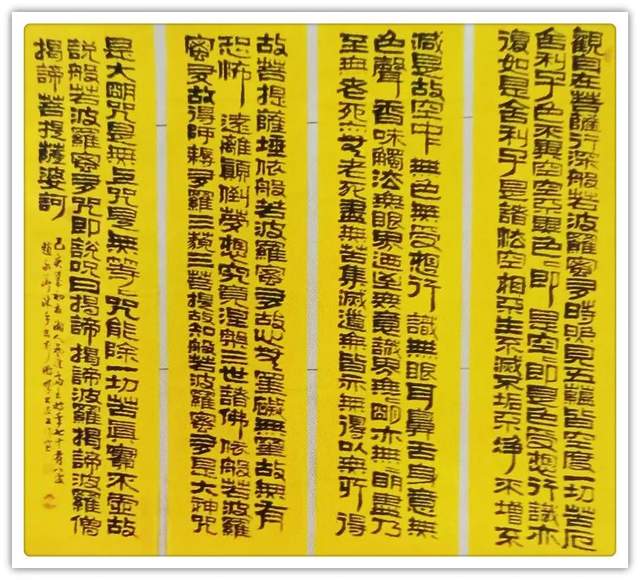 観自在菩薩行深般若波羅蜜多時照見五蘊皆空度一切苦厄
舍利子色不異空空不異色色即是空空即是色受想行識亦
復如是舍利子是諸法空相不生不滅不垢不淨不增不
減是故空中無色無受想行識無眼耳鼻舌身意無
色聲香味觸法無眼界乃至無意識界無明亦無明盡乃
至無老死亦無老死盡無苦集滅道無智亦無得以無所得
故菩提薩埵依般若波羅蜜多故心無罣礙無罣故無有
恐怖遠離顛倒夢想究竟涅槃三世諸佛依般若波羅
蜜多故得阿耨多羅三藐三菩提故知般若波羅蜜多是大神咒
是大明咒是無上咒是無等等咒能除一切苦真實不虛故
說般若波羅蜜多咒即說咒曰揭諦揭諦波羅揭諦波羅僧
揭諦菩提薩婆訶